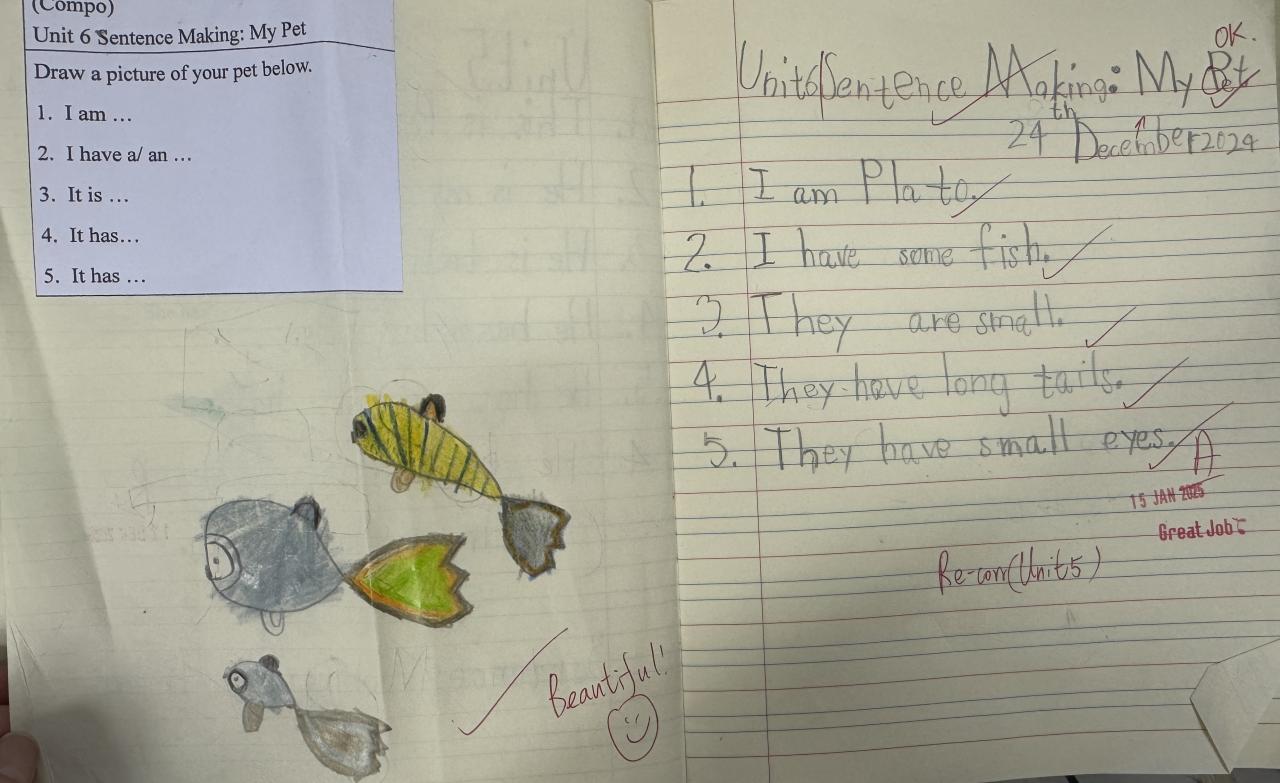 (Compo)
Unit 6 Sentence Making: My Pet
Draw a picture of your pet below.
1. I am ...
2. I have a/ an ...
3. It is ...
4. It has...
5. It has ...
Beautiful!
OK.
Unit6 Sentence Making: My Pet
24th December 2024
1. I am Plato.
2. I have some fish.
3. They are small.
4. They have long tails.
5. They have small eyes.
A
15 JAN 2025
Great Job
Re-corr(Unit5)